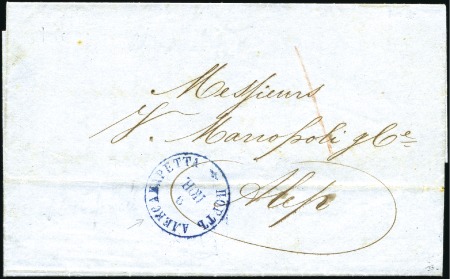 Messieurs
V. Marcopoli & Ce
Alep
ПОРТЪ АЛЕКСАНДРЕТТА
9
НОЯ